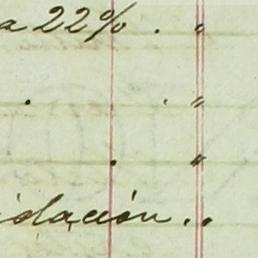 a 22% . "
. . "
. "
idación..